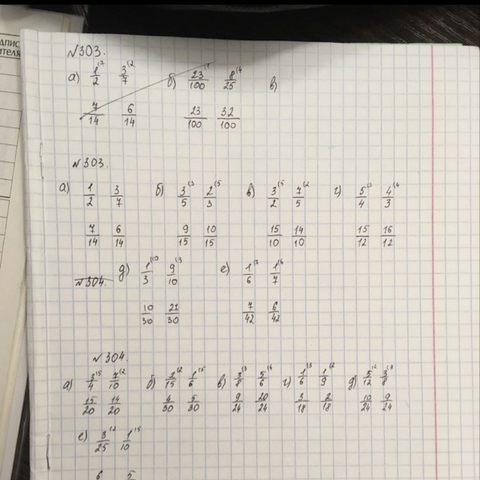 дпис
ителя
№303.
а) 1/2 ⁽⁷ 3/7 ⁽² б) 23/100 ⁽¹ 8/25 ⁽⁴ в)
7/14 6/14 23/100 32/100
№303.
а) 1/2 3/7 б) 3/5 ⁽³ 2/3 ⁽⁵ в) 3/2 ⁽⁵ 7/5 ⁽² г) 5/4 ⁽³ 4/3 ⁽⁴
7/14 6/14 9/15 10/15 15/10 14/10 15/12 16/12
№304. д) 1/3 ⁽¹⁰ 9/10 ⁽³ е) 1/6 1/7 ⁽⁶
10/30 27/30 7/42 6/42
№304.
а) 3/4 ⁽⁵ 7/10 ⁽² б) 2/15 ⁽² 1/6 ⁽⁵ в) 3/8 ⁽³ 5/6 ⁽⁴ г) 1/6 ⁽³ 1/9 ⁽² д) 5/12 ⁽² 3/8 ⁽³
15/20 14/20 4/30 5/30 9/24 20/24 3/18 2/18 10/24 9/24
е) 3/25 ⁽² 1/10 ⁽⁵
6 5